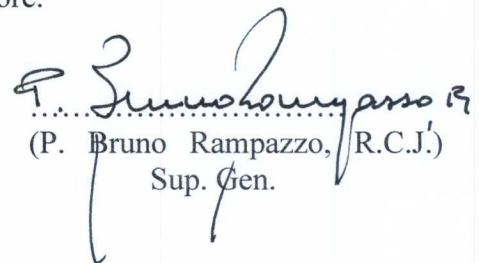 ore.
P. Bruno Rampazzo, RCJ
(P. Bruno Rampazzo, R.C.J.)
Sup. Gen.